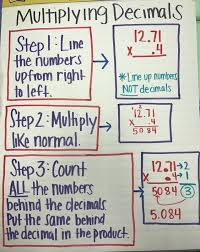 Multiplying Decimals
Step 1: Line
the numbers
up from right
to left.
12.71
x .4
*Line up numbers
NOT decimals
Step 2: Multiply
like normal.
1 2
12.71
x .4
5084
Step 3: Count
ALL the numbers
behind the decimals.
Put the same behind
the decimal in the product.
12.71→2
x .4→+1
5084 3
5.084